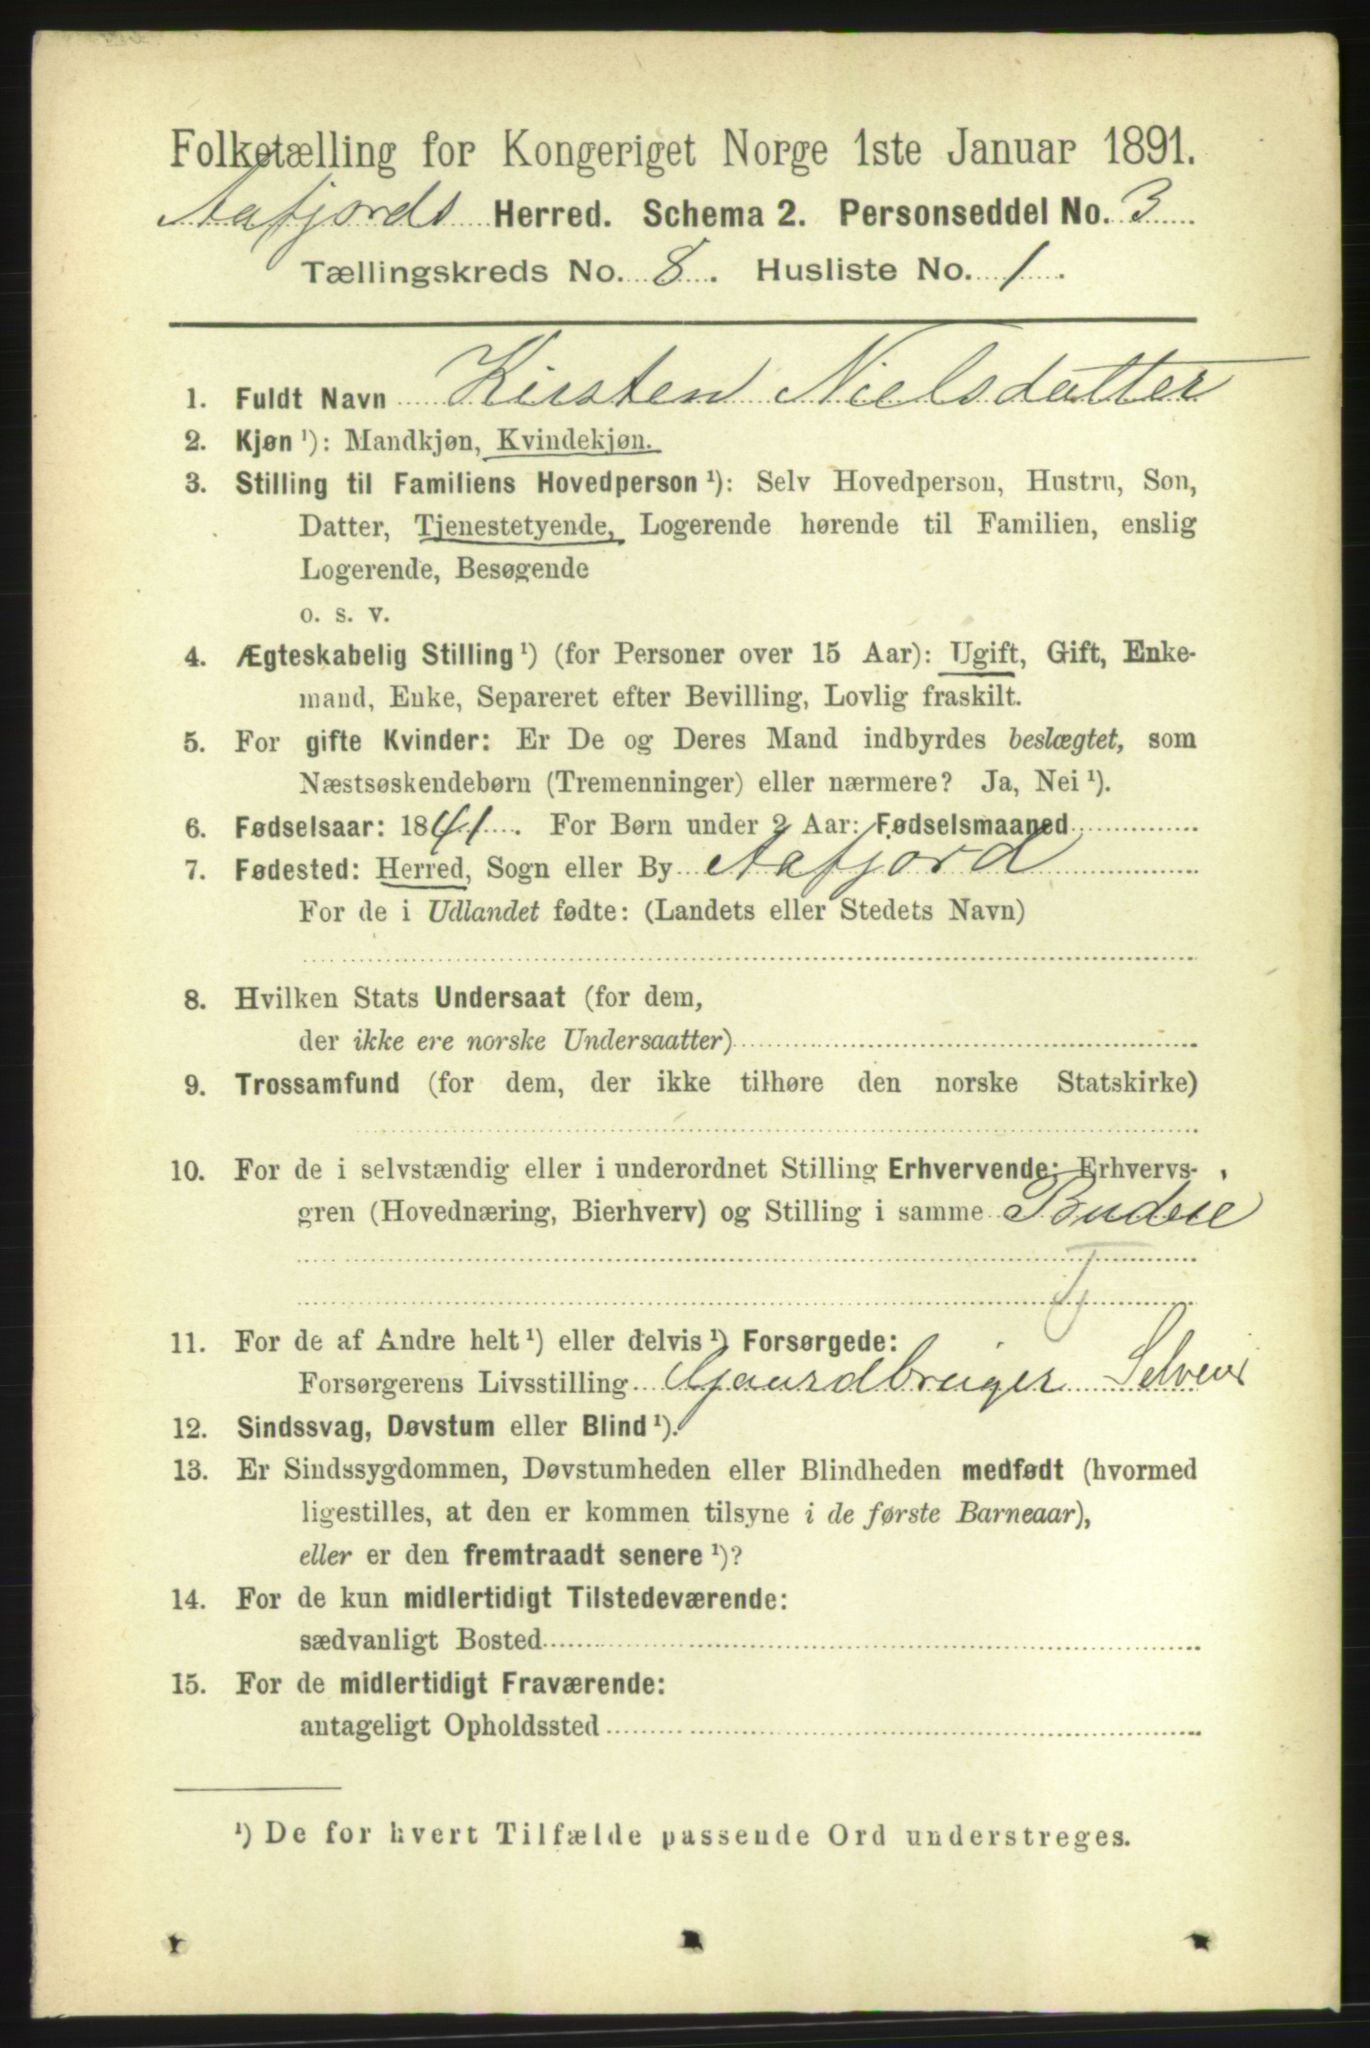 Folketælling for Kongeriget Norge 1ste Januar 1891.
Aafjords Herred. Schema 2. Personseddel No. 3
Tællingskreds No. 8. Husliste No. 1.
1. Fuldt Navn Kirsten Nielsdatter
2. Kjøn ¹): Mandkjøn, Kvindekjøn.
3. Stilling til Familiens Hovedperson ¹): Selv Hovedperson, Hustru, Søn,
Datter, Tjenestetyende, Logerende hørende til Familien, enslig
Logerende, Besøgende
o. s. v.
4. Ægteskabelig Stilling ¹) (for Personer over 15 Aar): Ugift, Gift, Enke-
mand, Enke, Separeret efter Bevilling, Lovlig fraskilt.
5. For gifte Kvinder: Er De og Deres Mand indbyrdes beslægtet, som
Næstsøskendebørn (Tremenninger) eller nærmere? Ja, Nei ¹).
6. Fødselsaar: 1841. For Børn under 2 Aar: Fødselsmaaned
7. Fødested: Herred, Sogn eller By Aafjord
For de i Udlandet fødte: (Landets eller Stedets Navn)
8. Hvilken Stats Undersaat (for dem,
der ikke ere norske Undersaatter)
9. Trossamfund (for dem, der ikke tilhøre den norske Statskirke)
10. For de i selvstændig eller i underordnet Stilling Erhvervende: Erhvervs-
gren (Hovednæring, Bierhverv) og Stilling i samme Budeie
T
11. For de af Andre helt ¹) eller delvis ¹) Forsørgede:
Forsørgerens Livsstilling Gaardbruger Selveier
12. Sindssvag, Døvstum eller Blind ¹).
13. Er Sindssygdommen, Døvstumheden eller Blindheden medfødt (hvormed
ligestilles, at den er kommen tilsyne i de første Barneaar),
eller er den fremtraadt senere ¹)?
14. For de kun midlertidigt Tilstedeværende:
sædvanligt Bosted
15. For de midlertidigt Fraværende:
antageligt Opholdssted
¹) De for hvert Tilfælde passende Ord understreges.